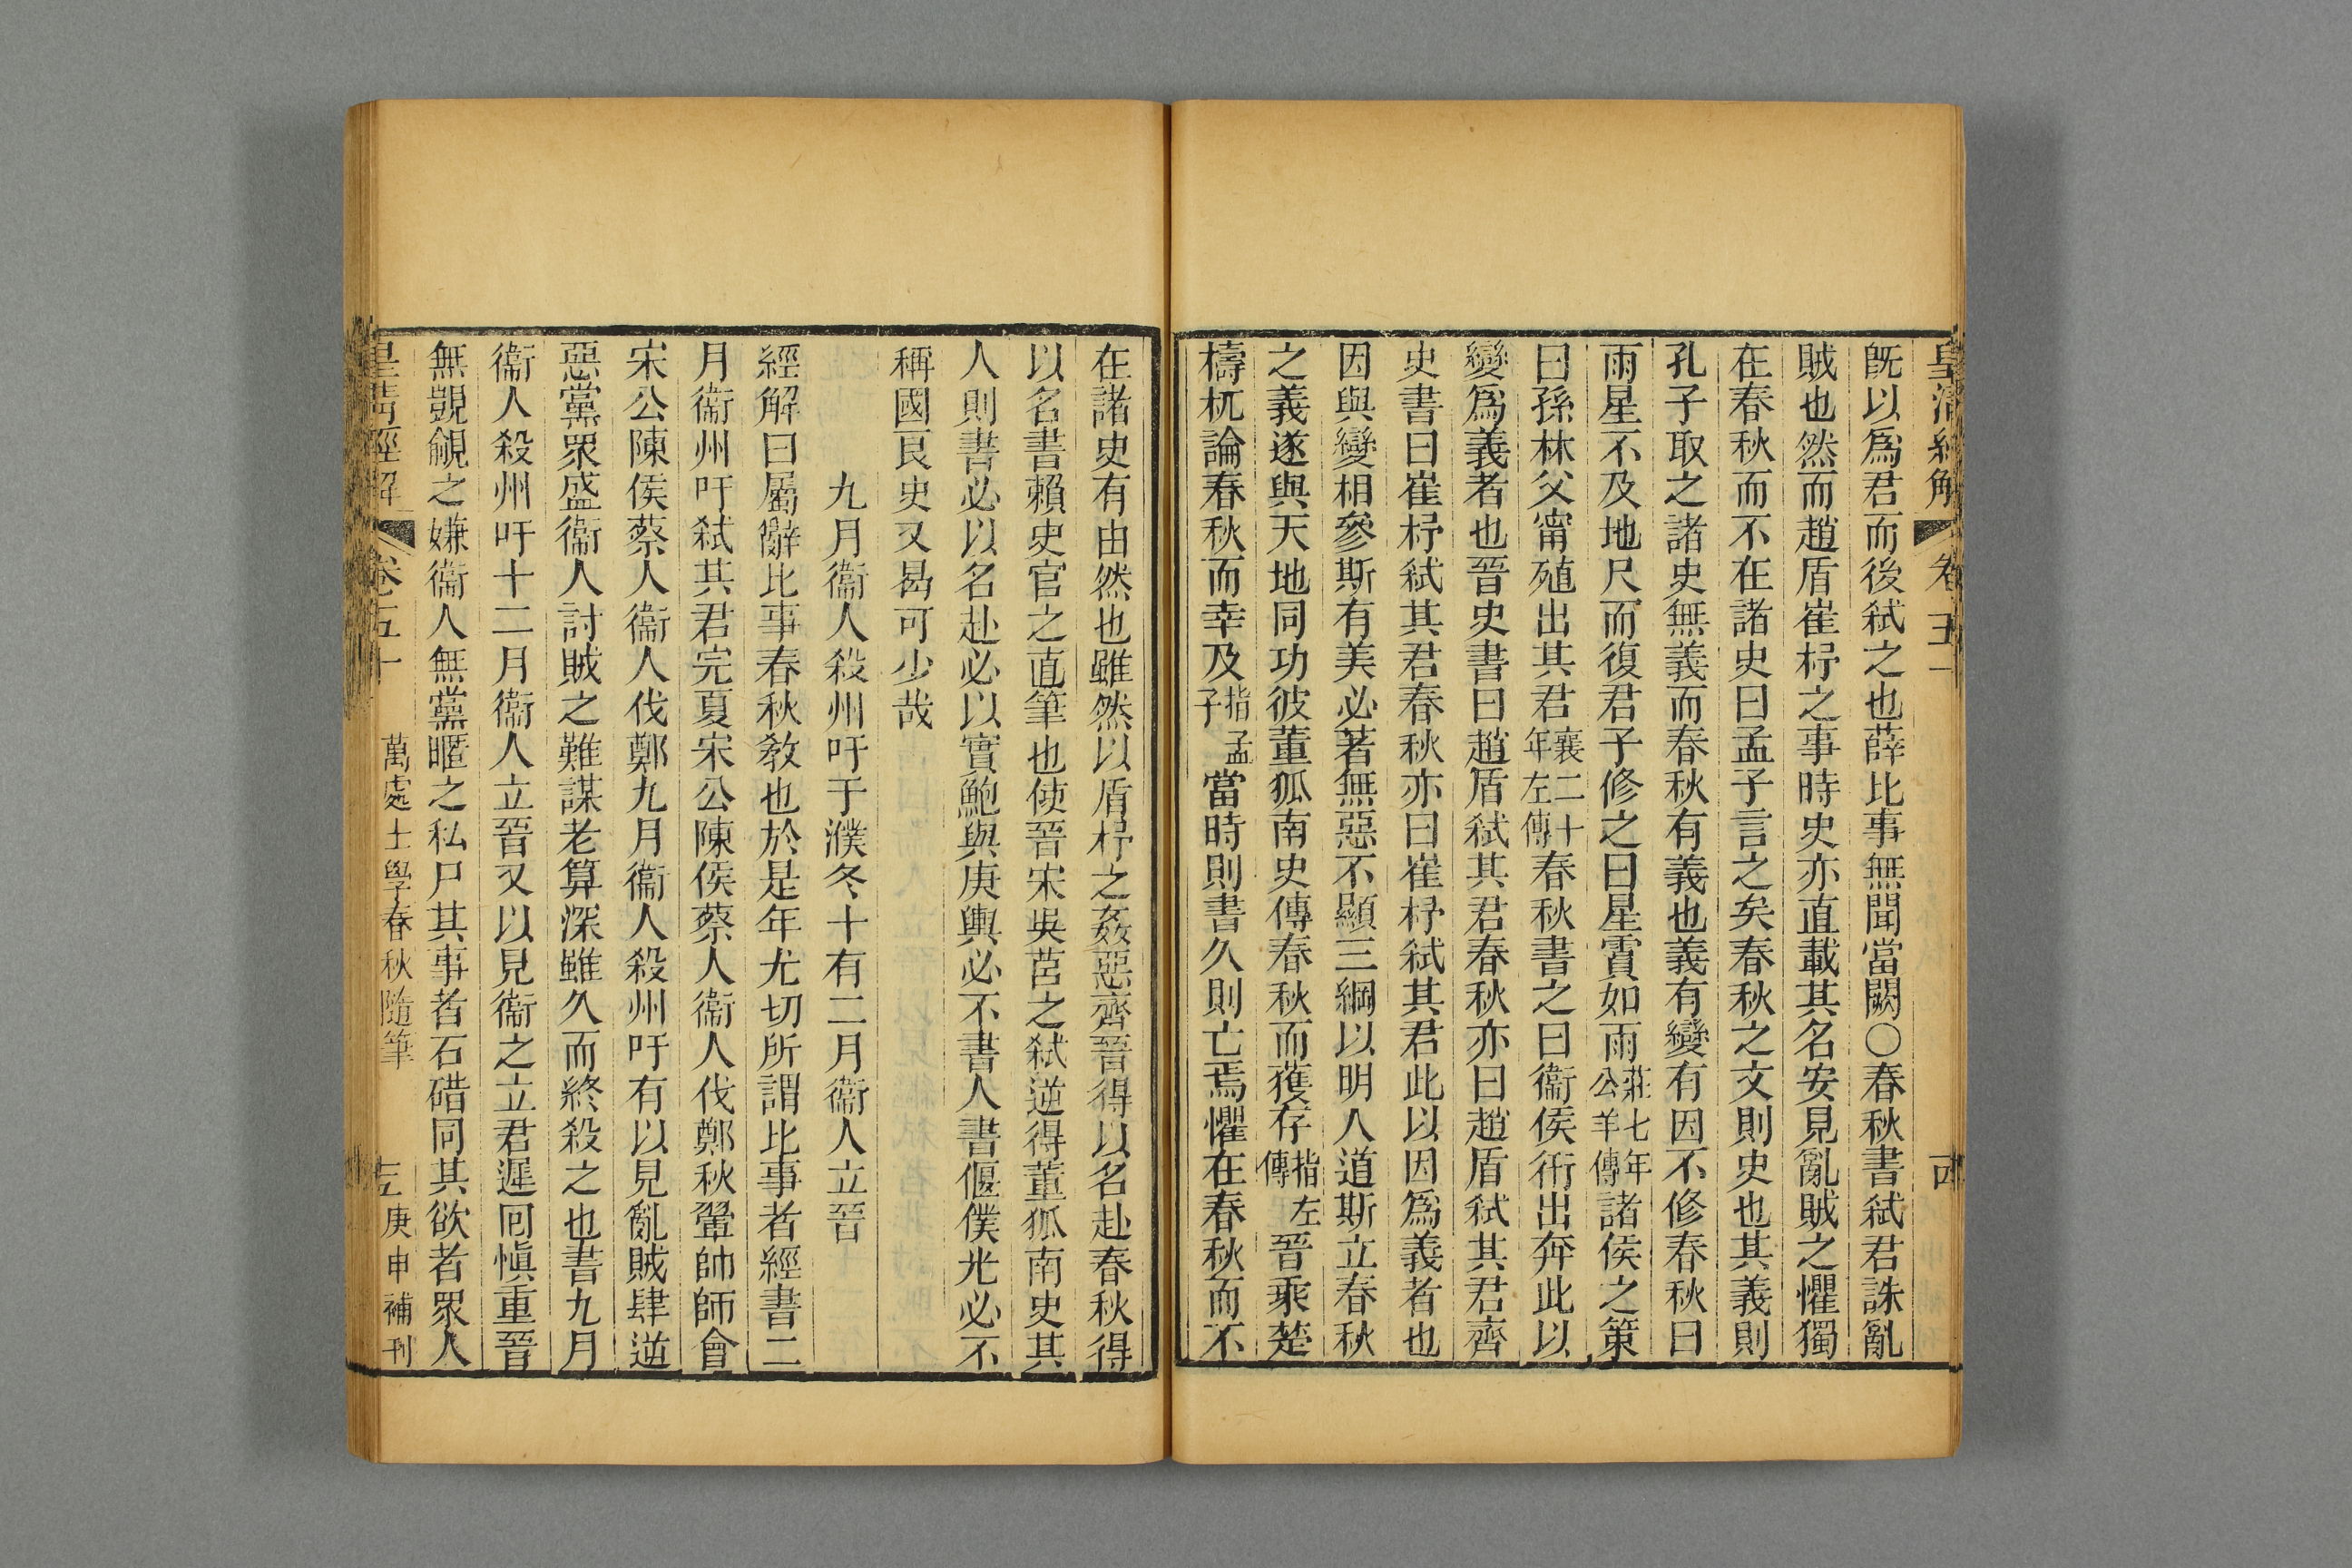 皇清經解 卷五十
既以爲君而後弑之也薛比事無聞當闕○春秋書弑君誅亂
賊也然而趙盾崔杼之事時史亦直載其名安見亂賊之懼獨
在春秋而不在諸史曰孟子言之矣春秋之文則史也其義則
孔子取之諸史無義而春秋有義也義有變有因不修春秋曰
雨星不及地尺而復君子修之曰星霣如雨莊七年公羊傳諸侯之策
曰孫林父甯殖出其君襄二十年左傳春秋書之曰衞侯衎出奔此以
變爲義者也晉史書曰趙盾弑其君春秋亦曰趙盾弑其君齊
史書曰崔杼弑其君春秋亦曰崔杼弑其君此以因爲義者也
因與變相參斯有美必著無惡不顯三綱以明人道斯立春秋
之義遂與天地同功彼董狐南史傳春秋而獲存指左傳晉乘楚
檮杌論春秋而幸及指孟子當時則書久則亡焉懼在春秋而不
在諸史有由然也雖然以盾杼之姦惡齊晉得以名赴春秋得
以名書賴史官之直筆也使晉宋吳莒之弑逆得董狐南史其
人則書必以名赴必以實鮑與庚輿必不書人書偃僕光必不
稱國良史又曷可少哉
九月衞人殺州吁于濮冬十有二月衞人立晉
經解曰屬辭比事春秋敎也於是年尤切所謂比事者經書二
月衞州吁弑其君完夏宋公陳侯蔡人衞人伐鄭秋翬帥師會
宋公陳侯蔡人衞人伐鄭九月衞人殺州吁有以見亂賊肆逆
惡黨眾盛衞人討賊之難謀老算深雖久而終殺之也書九月
衞人殺州吁十二月衞人立晉又以見衞之立君遲囘愼重晉
無覬覦之嫌衞人無黨暱之私尸其事者石碏同其欲者眾人
皇清經解 卷五十 萬處士學春秋隨筆 庚申補刊